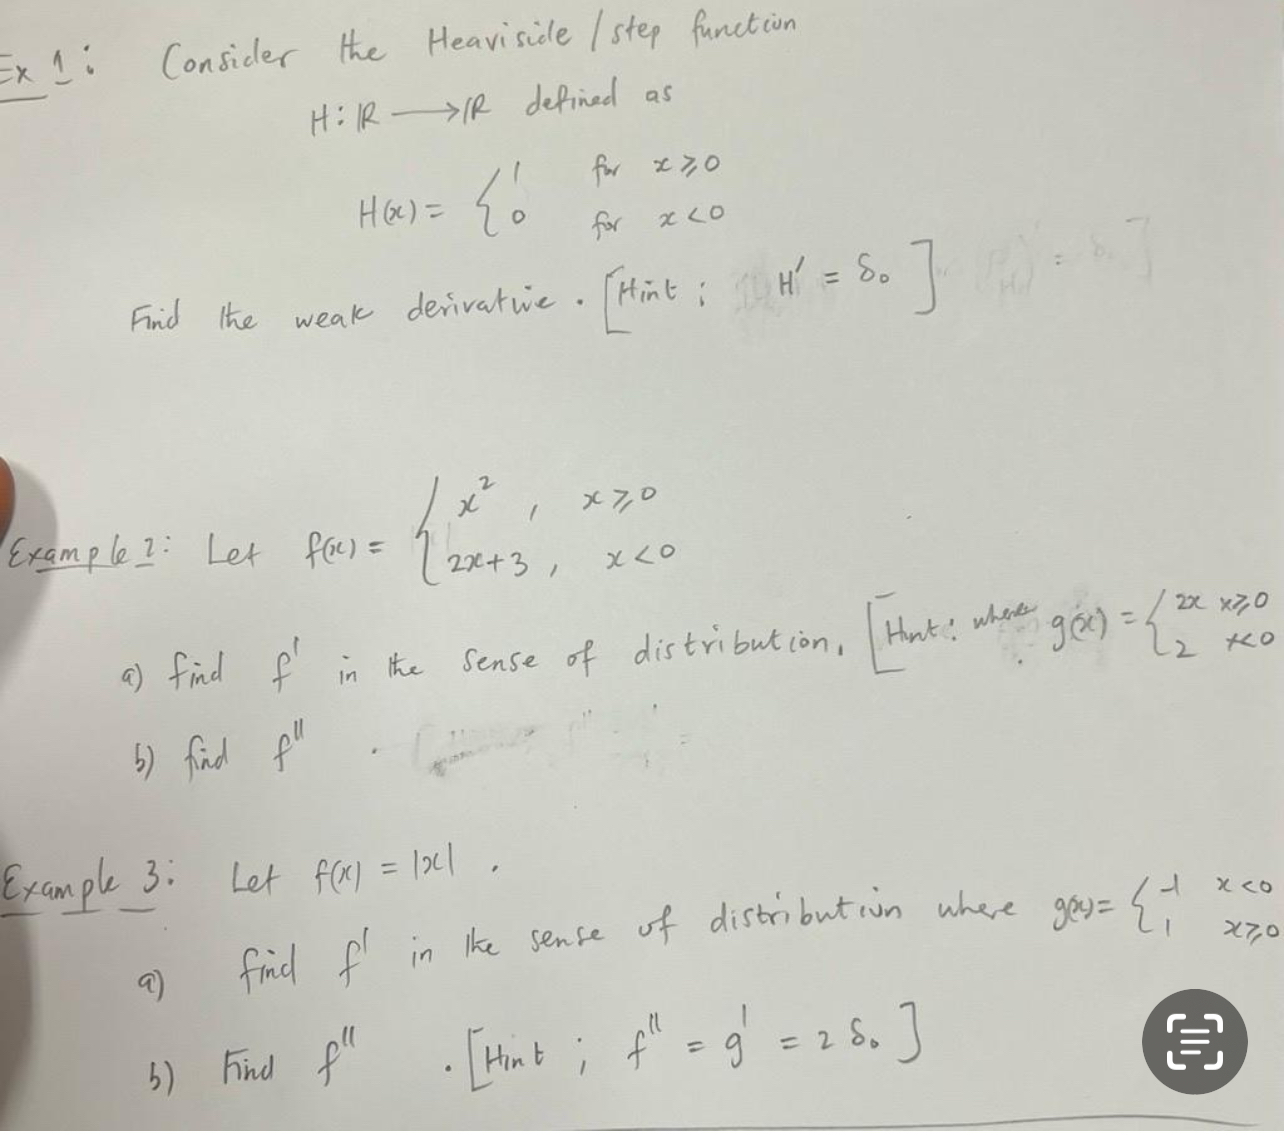 Ex 1: Consider the Heaviside / step function
H: ℝ ⟶ ℝ defined as
H(x) = { 1 for x ⩾ 0
0 for x < 0
Find the weak derivative. [Hint; H' = δ₀]
Example 2: Let f(x) = { x², x ⩾ 0
2x+3, x < 0
a) find f' in the sense of distribution. [Hint: where g(x) = { 2x x⩾0
2 x<0
b) find f'' .
Example 3: Let f(x) = |x| .
a) find f' in the sense of distribution where g(x) = { -1 x<0
1 x⩾0
b) Find f'' . [Hint; f'' = g' = 2 δ₀]